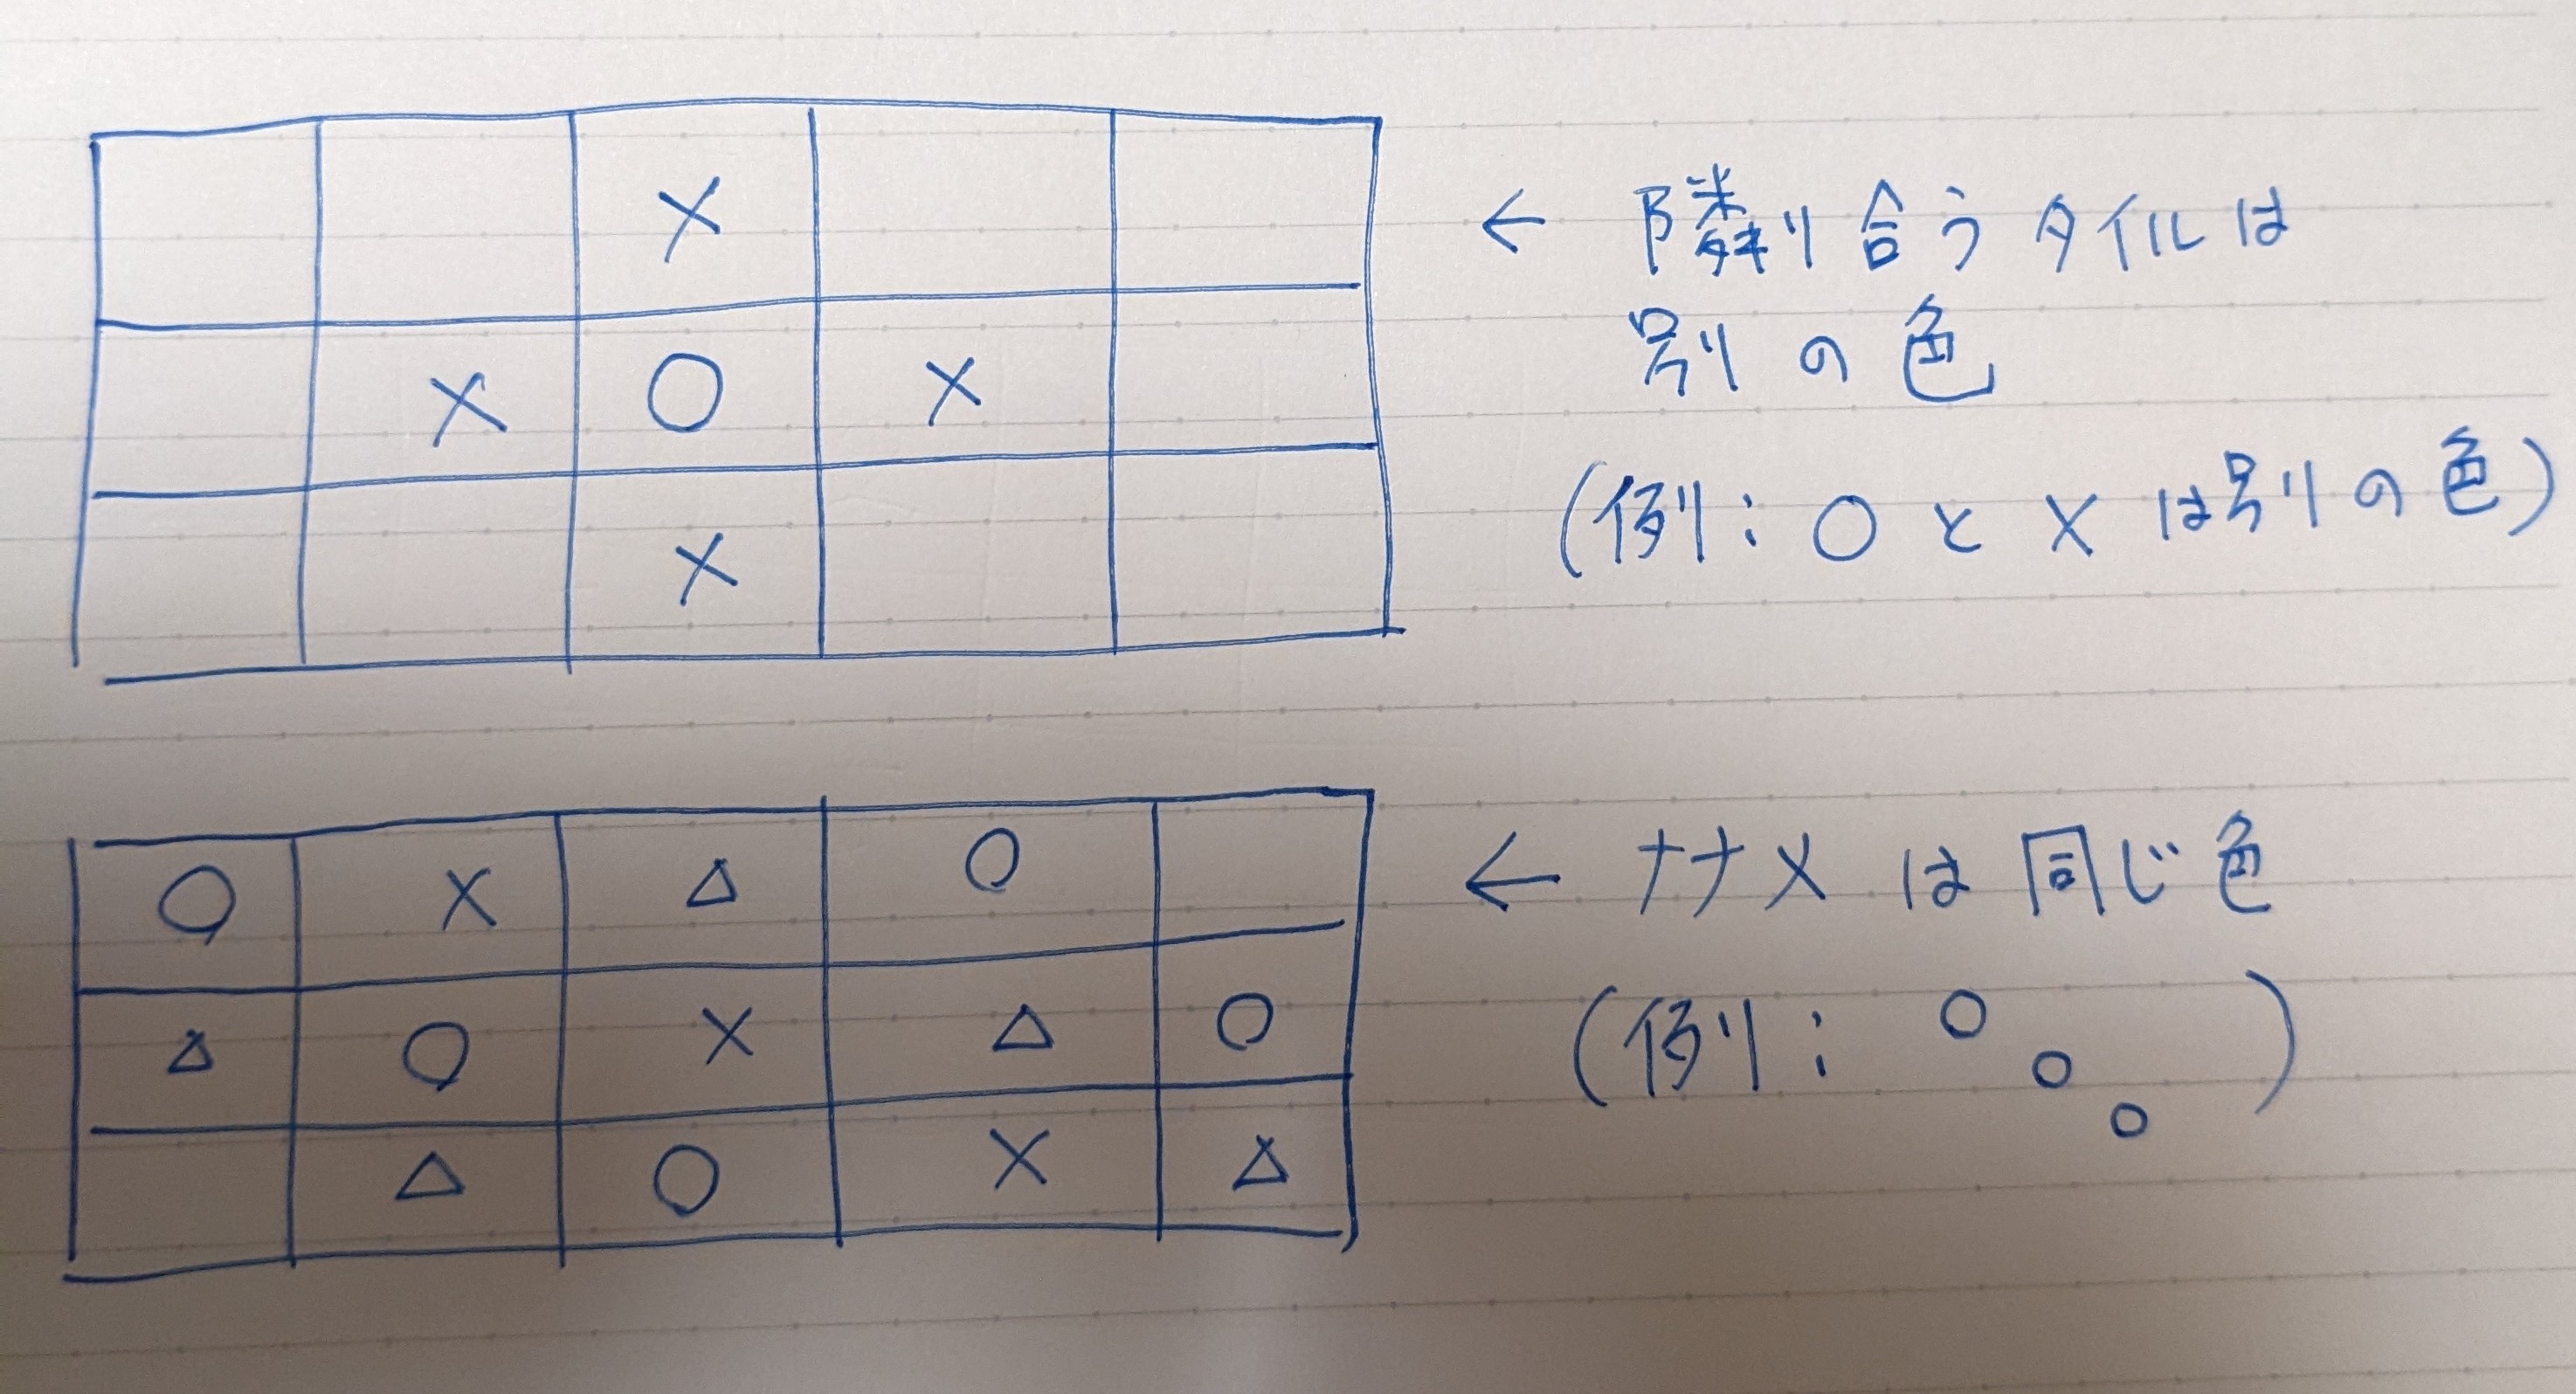 ×
← 隣り合うタイルは
別の色
× ○ ×
(例:○ と × は別の色)
×
○ × △ ○
← ナナメ は 同じ色
△ ○ × △ ○
(例: ○ ○ ○ )
△ ○ × △